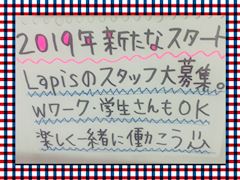 2019年新たなスタート
Lapisのスタッフ大募集。
Wワーク・学生さんもOK
楽しく一緒に働こう